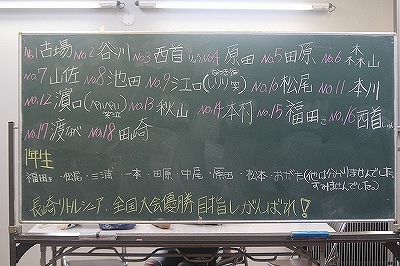 No.1 古場 No.2 谷川 No.3 西首 No.4 原田 No.5 田原 No.6 森山
No.7 山佐 No.8 池田 No.9 江口 No.10 松尾 No.11 本川
No.12 濵口 No.13 秋山 No.14 本村 No.15 福田 No.16 西首
No.17 渡辺 No.18 田崎
1年生
福田 ・松尾・三浦・一本・田原・中尾・原田・松本・おがた(他は分かりませんでした。
すみませんでした。)
長崎リトルシニア 全国大会優勝目指しがんばれ!